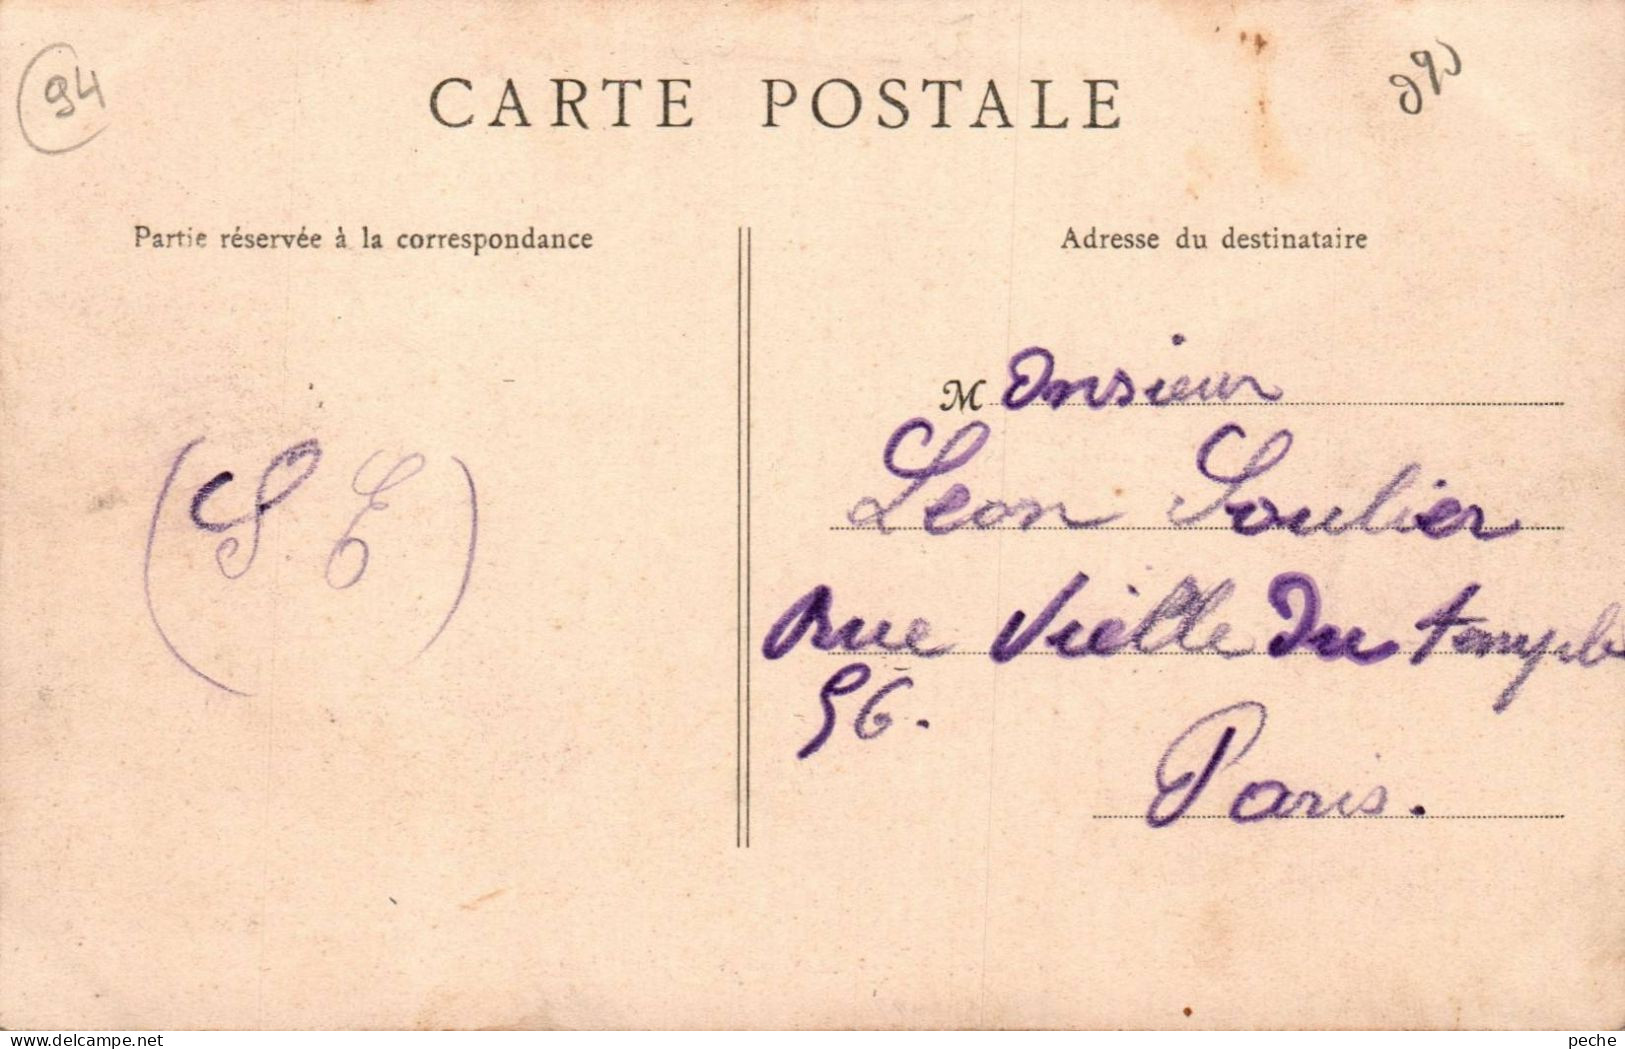 94
CARTE POSTALE
Partie réservée à la correspondance
(S. E)
Adresse du destinataire
Monsieur
Leon Soulier
rue Vielle Du temple
56.
Paris.
delcampe.net
peche